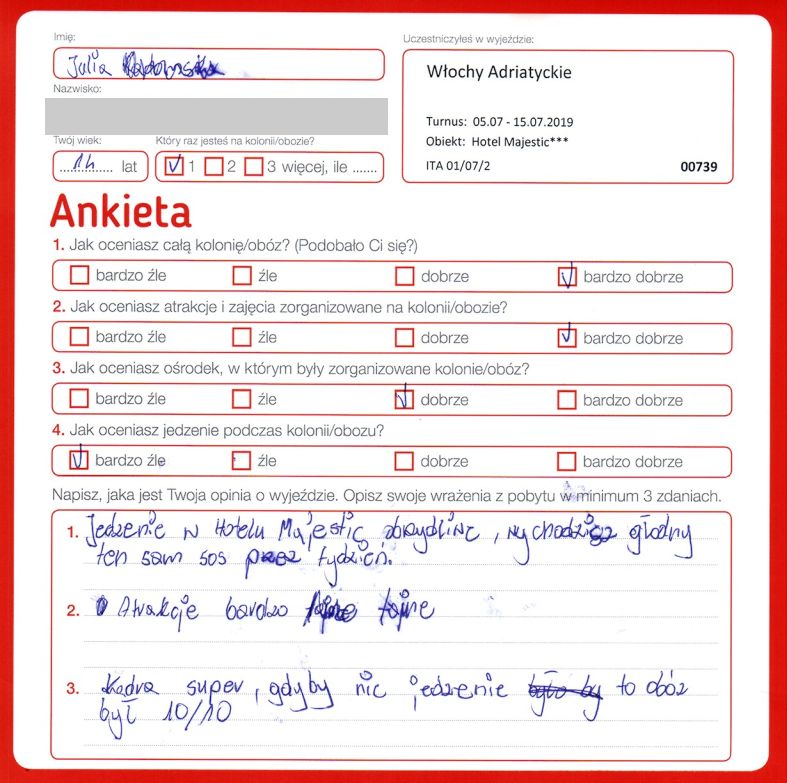 Imię:
Julia
Uczestniczyłeś w wyjeździe:
Nazwisko:
Włochy Adriatyckie
Turnus: 05.07 - 15.07.2019
Obiekt: Hotel Majestic***
ITA 01/07/2 00739
Twój wiek: Który raz jesteś na kolonii/obozie?
14 lat 1 2 3 więcej, ile .......
Ankieta
1. Jak oceniasz całą kolonię/obóz? (Podobało Ci się?)
bardzo źle źle dobrze bardzo dobrze
2. Jak oceniasz atrakcje i zajęcia zorganizowane na kolonii/obozie?
bardzo źle źle dobrze bardzo dobrze
3. Jak oceniasz ośrodek, w którym były zorganizowane kolonie/obóz?
bardzo źle źle dobrze bardzo dobrze
4. Jak oceniasz jedzenie podczas kolonii/obozu?
bardzo źle źle dobrze bardzo dobrze
Napisz, jaka jest Twoja opinia o wyjeździe. Opisz swoje wrażenia z pobytu w minimum 3 zdaniach.
1. Jedzenie w Hotelu Majestic obrzydliwe, wychodzisz głodny
ten sam sos przez tydzień.
2. Atrakcje bardzo fajne
3. Kadra super, gdyby nie jedzenie było by to obóz
był 10/10